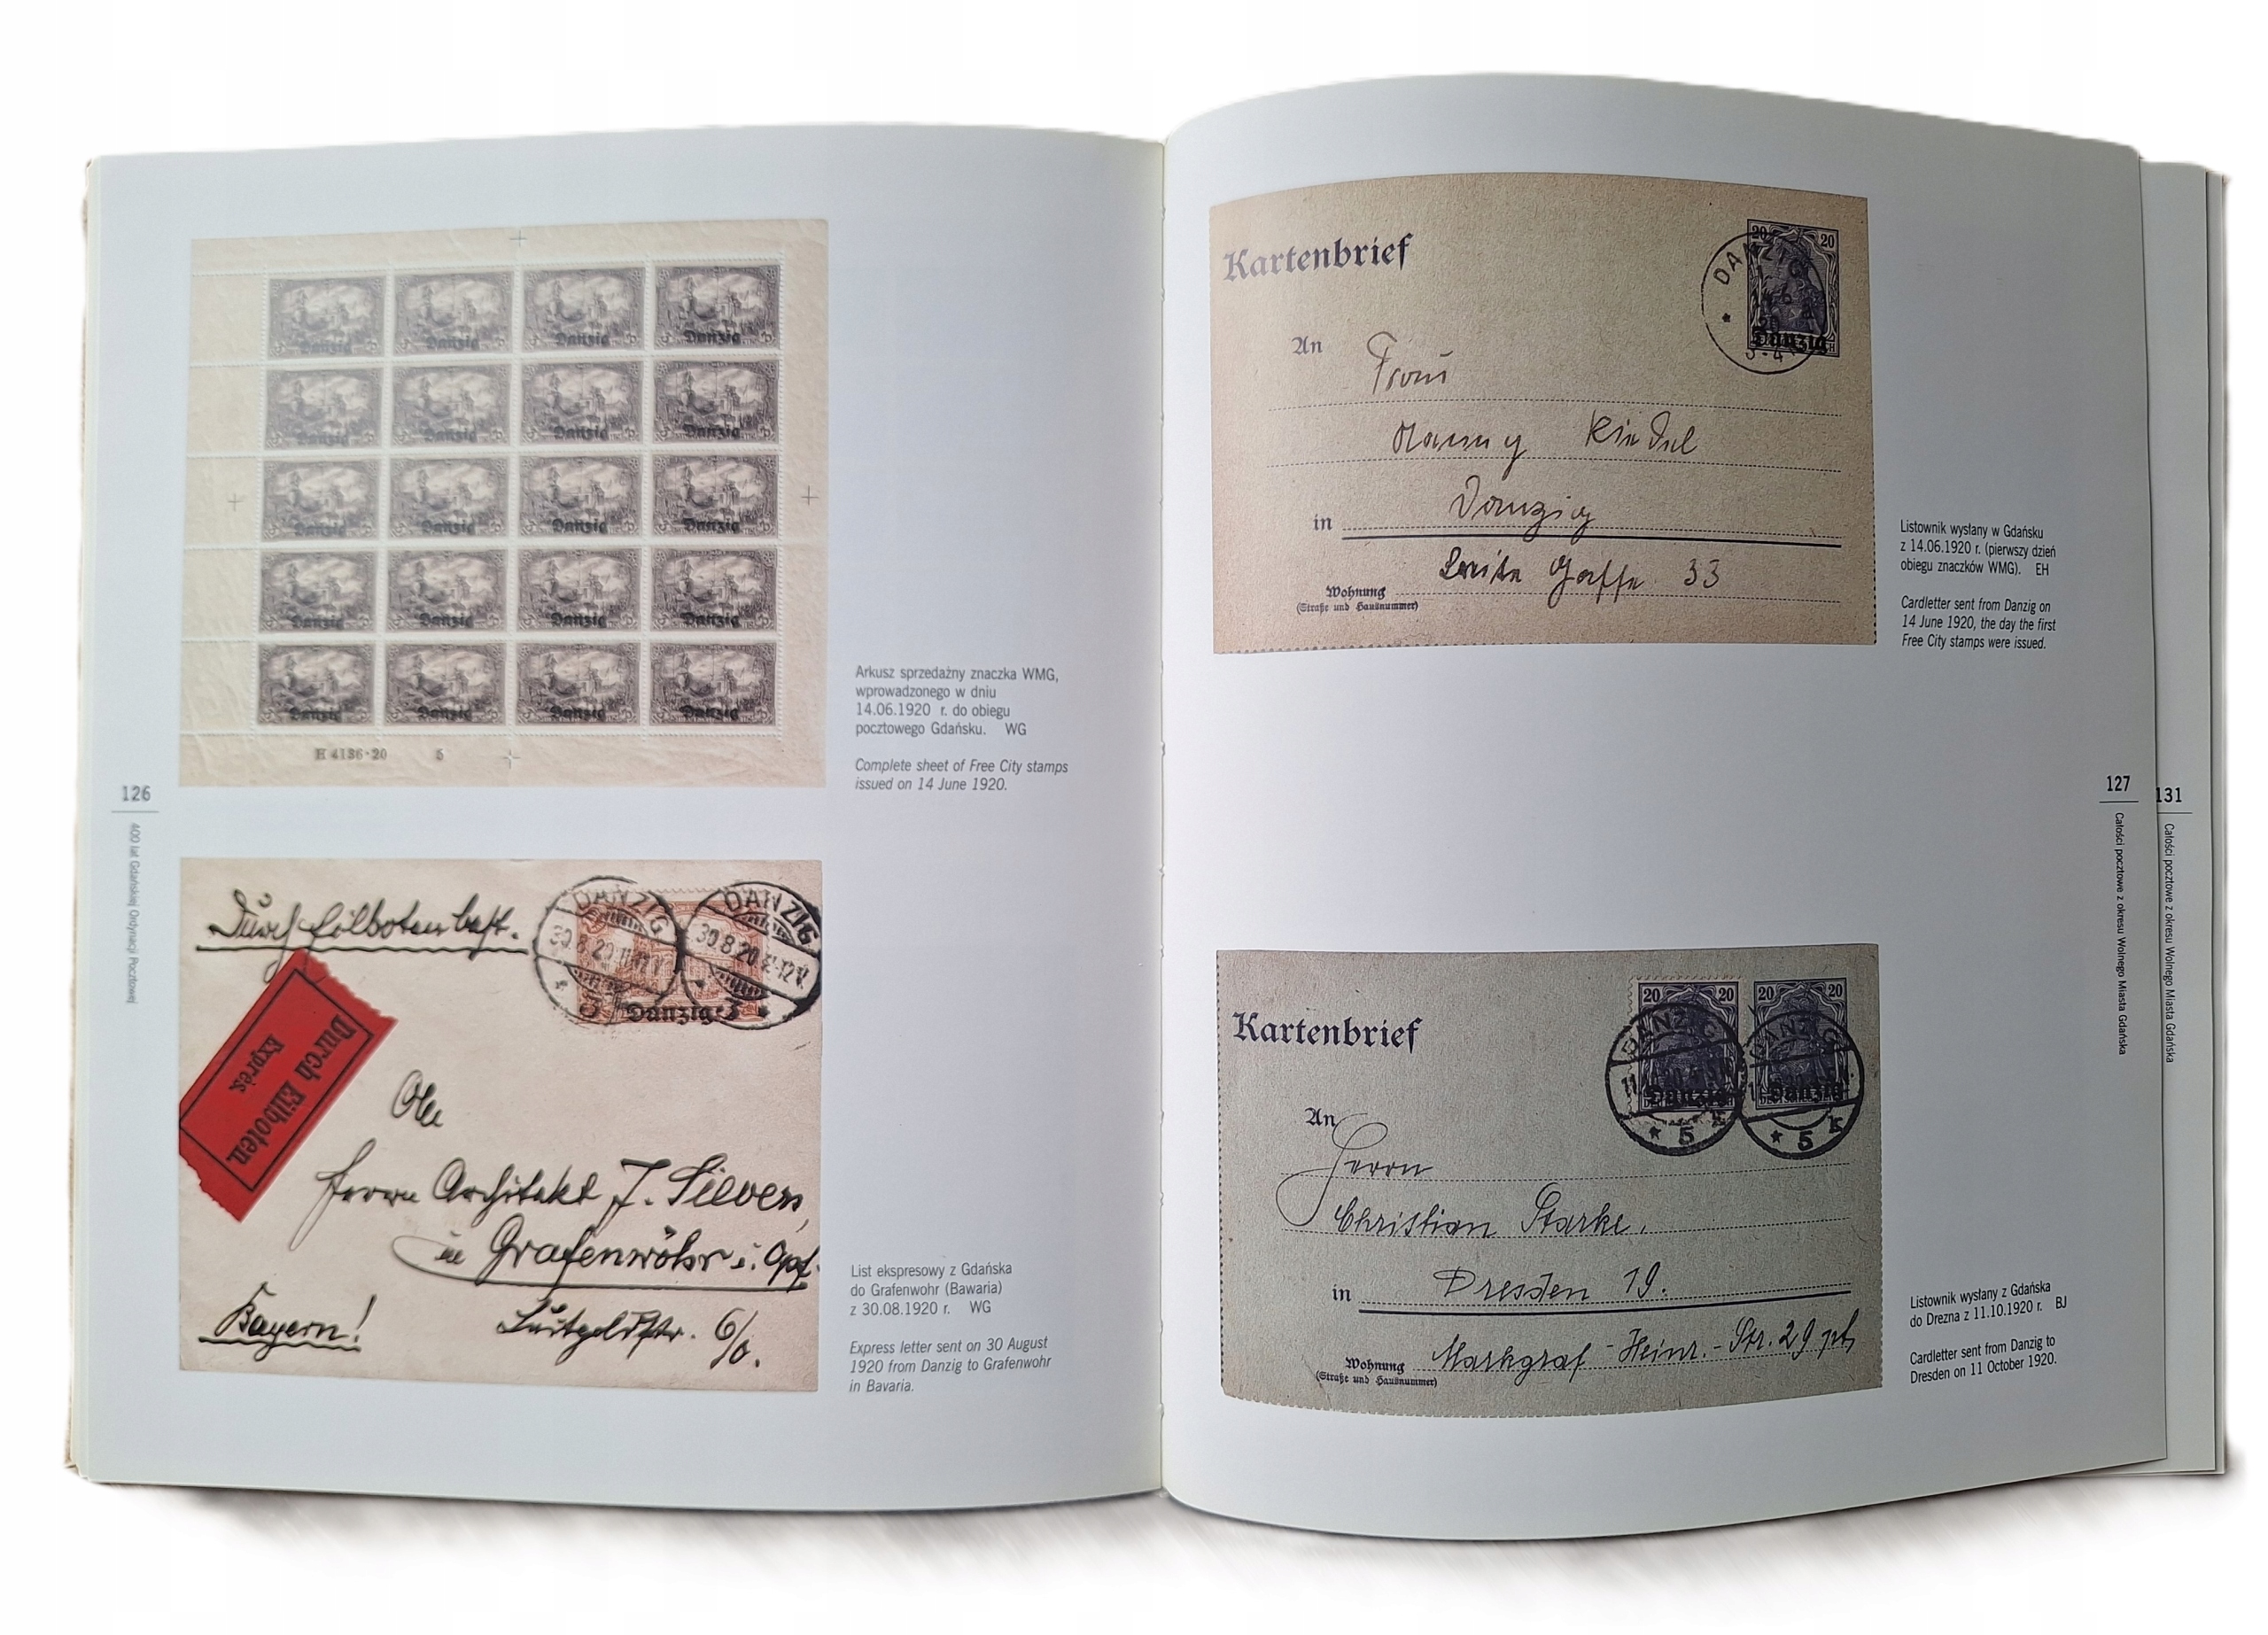 Danzig Danzig Danzig Danzig
Danzig Danzig Danzig Danzig
Danzig Danzig Danzig Danzig
Danzig Danzig Danzig Danzig
Danzig Danzig Danzig Danzig
H 4186·20 5
Arkusz sprzedażny znaczka WMG,
wprowadzonego w dniu
14.06.1920 r. do obiegu
pocztowego Gdańsku. WG
Complete sheet of Free City stamps
issued on 14 June 1920.
126
400 lat Gdańskiej Ordynacji Pocztowej
Durch Eilboten
DANZIG
30.8.20
DANZIG
30.8.20
Danzig
Durch Eilboten.
Exprès.
Herrn Architekt J. Sievers,
in Grafenwöhr i. Opf.
Bayern!
Luitpoldstr. 6/0.
List ekspresowy z Gdańska
do Grafenwohr (Bawaria)
z 30.08.1920 r. WG
Express letter sent on 30 August
1920 from Danzig to Grafenwohr
in Bavaria.
Kartenbrief
20 20
DANZIG
Danzig
An Frau
Riedel
in Danzig
Wohnung
(Straße und Hausnummer)
Breite Gasse 33
Listownik wysłany w Gdańsku
z 14.06.1920 r. (pierwszy dzień
obiegu znaczków WMG). EH
Cardletter sent from Danzig on
14 June 1920, the day the first
Free City stamps were issued.
127
Całości pocztowe z okresu Wolnego Miasta Gdańska
131
Całości pocztowe z okresu Wolnego Miasta Gdańska
Kartenbrief
20 20 20 20
DANZIG DANZIG
Danzig Danzig
* 5 k * 5 k
An
Herrn
Christian Starke.
in Dresden 19.
Wohnung Markgraf-Heinr.-Str. 29 pt.
(Straße und Hausnummer)
Listownik wysłany z Gdańska
do Drezna z 11.10.1920 r. BJ
Cardletter sent from Danzig to
Dresden on 11 October 1920.